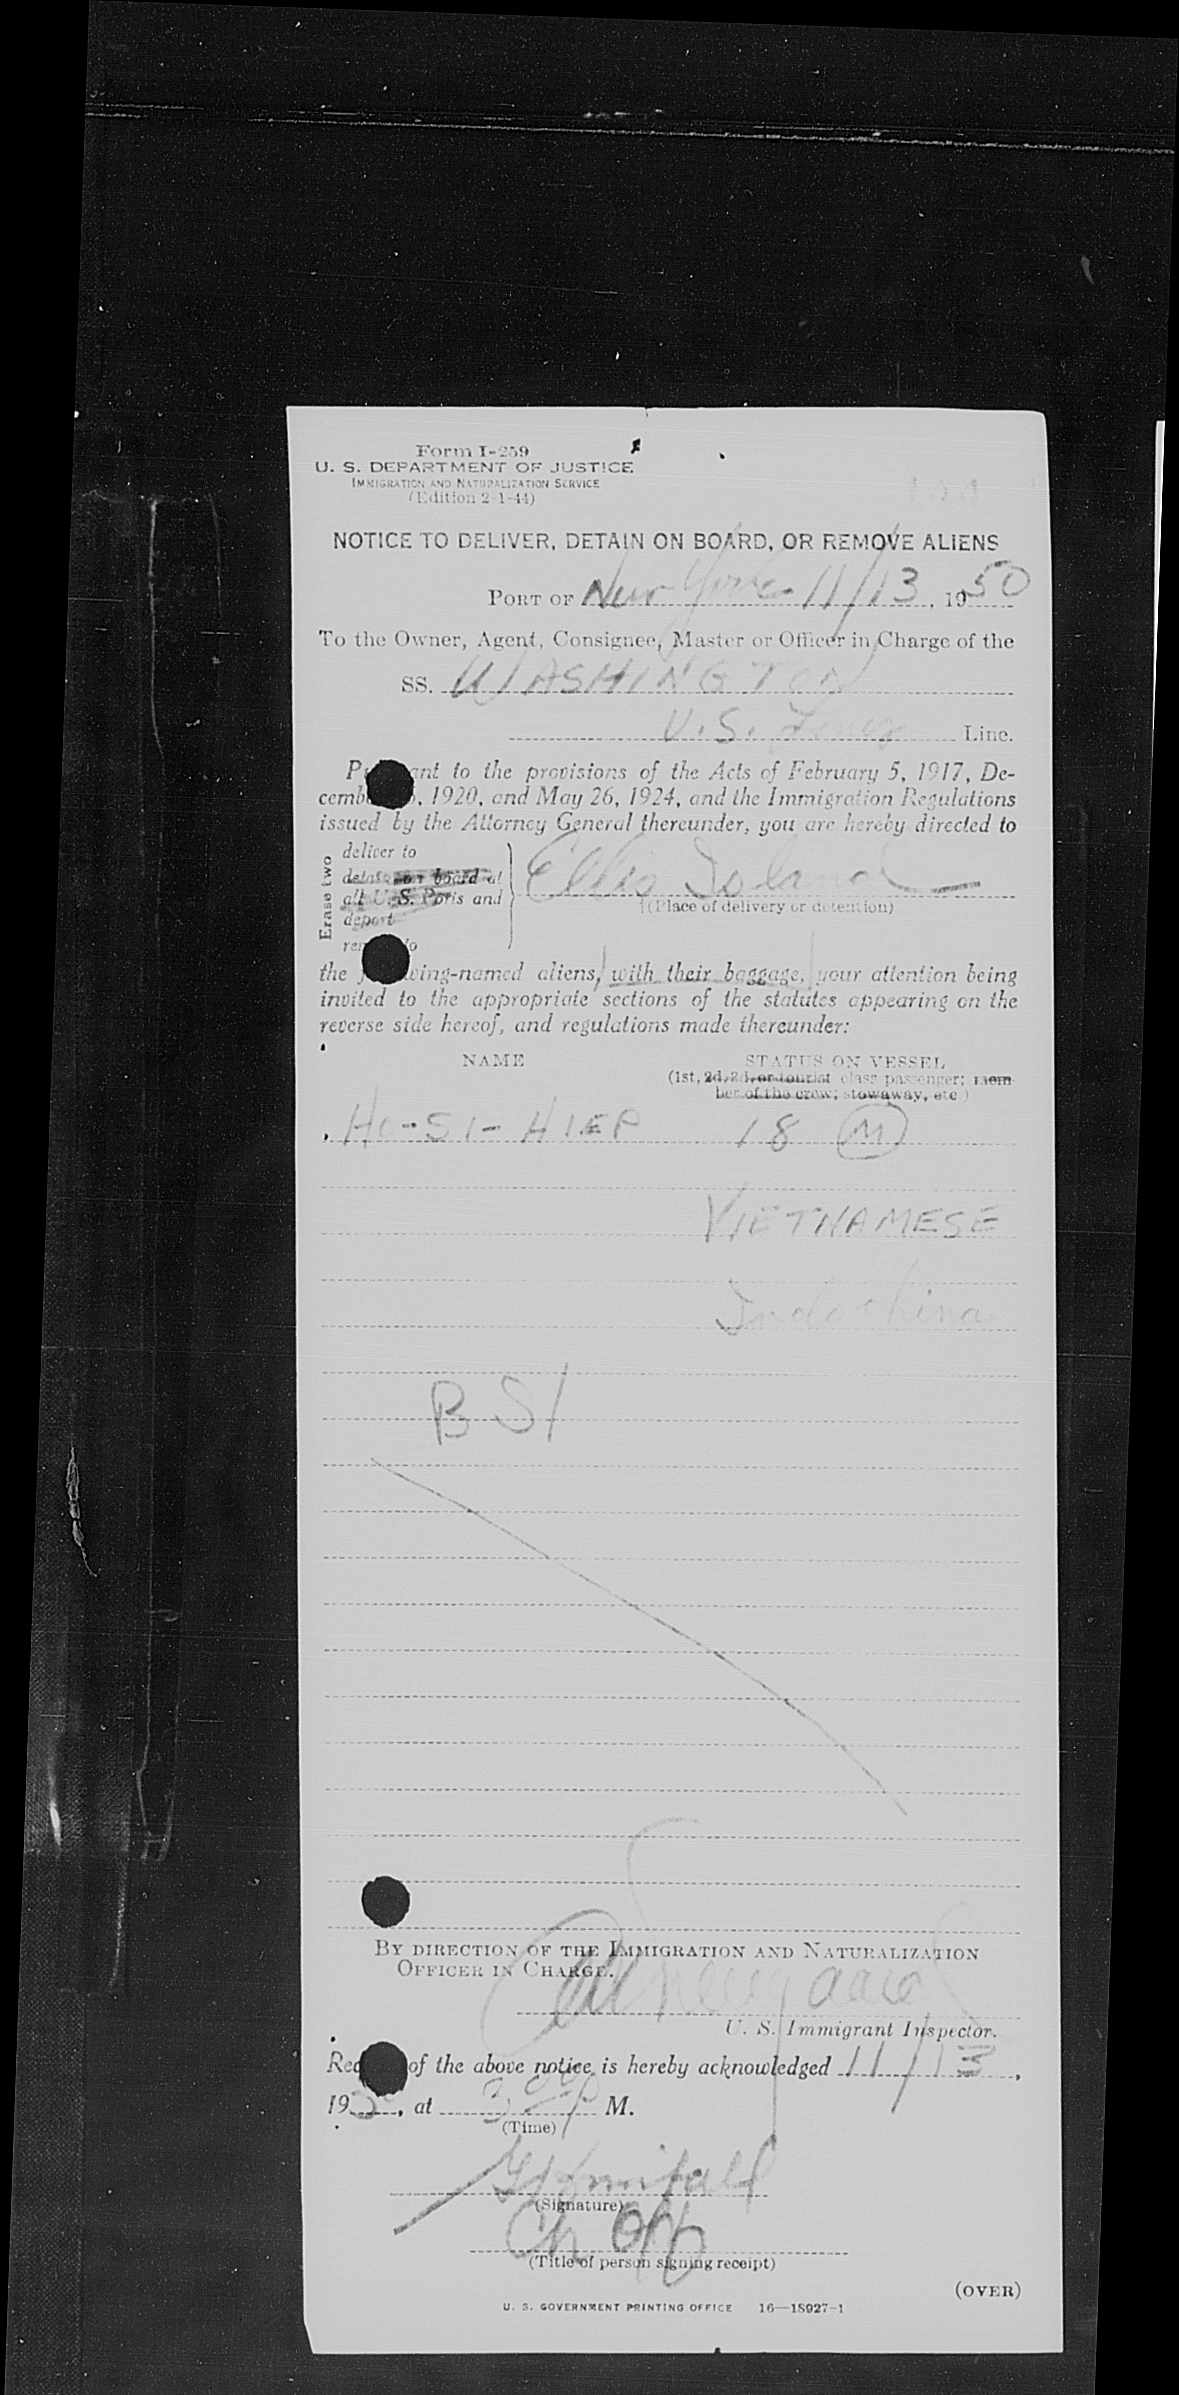 Form I-259
U. S. DEPARTMENT OF JUSTICE
IMMIGRATION AND NATURALIZATION SERVICE
(Edition 2-1-44)
NOTICE TO DELIVER, DETAIN ON BOARD, OR REMOVE ALIENS
PORT OF New York 11/13, 1950
To the Owner, Agent, Consignee, Master or Officer in Charge of the
SS. WASHINGTON
U.S. Lines Line.
Pu ant to the provisions of the Acts of February 5, 1917, De-
cemb , 1920, and May 26, 1924, and the Immigration Regulations
issued by the Attorney General thereunder, you are hereby directed to
Erase two
deliver to
detain on board at
all U. S. Ports and
deport
rem to
Ellis Island
(Place of delivery or detention)
the f wing-named aliens, with their baggage, your attention being
invited to the appropriate sections of the statutes appearing on the
reverse side hereof, and regulations made thereunder:
NAME STATUS ON VESSEL
(1st, 2d, 3d, or tourist class passenger; mem-
ber of the crew; stowaway, etc.)
HO-SI-HIEP 18 M
VIETNAMESE
Indochina
BSI
BY DIRECTION OF THE IMMIGRATION AND NATURALIZATION
OFFICER IN CHARGE.
U. S. Immigrant Inspector.
Rec of the above notice is hereby acknowledged 11/13,
195 , at 3 00 p M.
(Time)
(Signature)
Ch Off
(Title of person signing receipt)
(OVER)
U. S. GOVERNMENT PRINTING OFFICE 16—18927-1